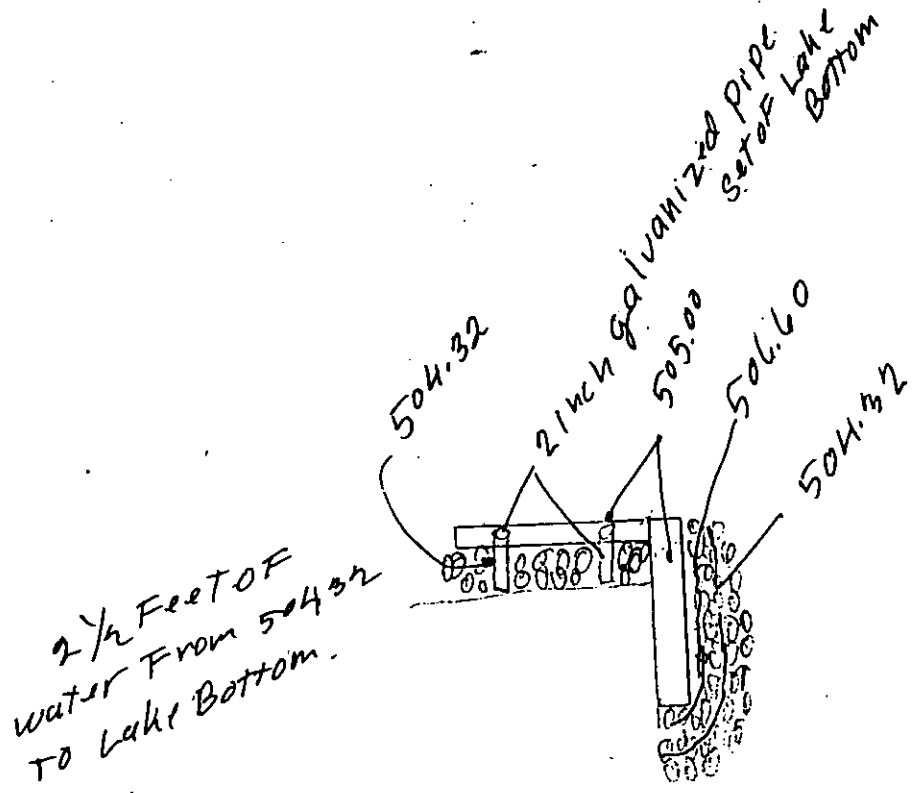 2 inch galvanized pipe
Set of Lake
Bottom
504.32
505.00
506.60
504.32
2 1/2 Feet OF
water From 504 32
TO Lake Bottom.